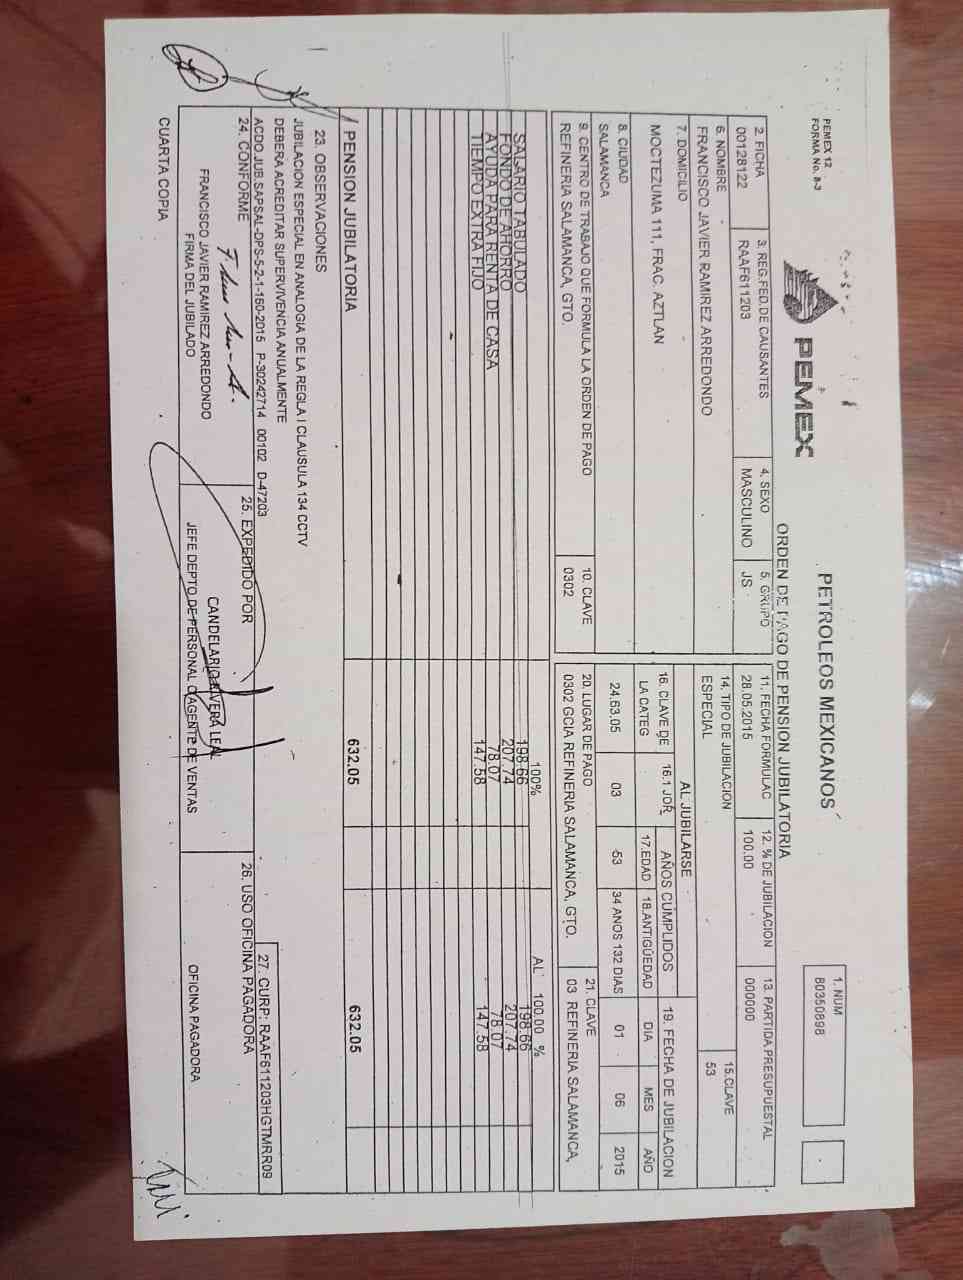 PEMEX 12
FORMA No. 8-3
PEMEX
PETROLEOS MEXICANOS
ORDEN DE PAGO DE PENSION JUBILATORIA
1. NUM
80350898
2. FICHA
00128122
3. REG.FED.DE CAUSANTES
RAAF611203
4. SEXO
MASCULINO
5. GRUPO
JS
11. FECHA FORMULAC
28.05.2015
12. % DE JUBILACION
100.00
13. PARTIDA PRESUPUESTAL
000000
6. NOMBRE
FRANCISCO JAVIER RAMIREZ ARREDONDO
14. TIPO DE JUBILACION
ESPECIAL
15.CLAVE
53
7. DOMICILIO
MOCTEZUMA 111, FRAC. AZTLAN
AL JUBILARSE
16. CLAVE DE LA CATEG
16.1 JOR.
AÑOS CUMPLIDOS
17.EDAD
18.ANTIGÜEDAD
19. FECHA DE JUBILACION
DIA MES AÑO
8. CIUDAD
SALAMANCA
24.63.05 03 53 34 ANOS 132 DIAS 01 06 2015
9. CENTRO DE TRABAJO QUE FORMULA LA ORDEN DE PAGO
REFINERIA SALAMANCA, GTO.
10. CLAVE
0302
20. LUGAR DE PAGO
0302 GCIA REFINERIA SALAMANCA, GTO.
21. CLAVE
03 REFINERIA SALAMANCA,
100% AL 100.00 %
SALARIO TABULADO 198.66 198.66
FONDO DE AHORRO 207.74 207.74
AYUDA PARA RENTA DE CASA 78.07 78.07
TIEMPO EXTRA FIJO 147.58 147.58
PENSION JUBILATORIA 632.05 632.05
23. OBSERVACIONES
JUBILACION ESPECIAL EN ANALOGIA DE LA REGLA I CLAUSULA 134 CCTV
DEBERA ACREDITAR SUPERVIVENCIA ANUALMENTE
ACDO.JUB.SAPSAL-DPS-5-2-1-150-2015 P-30242714 00102 D-47203
27. CURP: RAAF611203HGTMRR09
24. CONFORME
FRANCISCO JAVIER RAMIREZ ARREDONDO
FIRMA DEL JUBILADO
25. EXPEDIDO POR
CANDELARIO RIVERA LEAL
JEFE DEPTO DE PERSONAL O AGENTE DE VENTAS
26. USO OFICINA PAGADORA
OFICINA PAGADORA
CUARTA COPIA